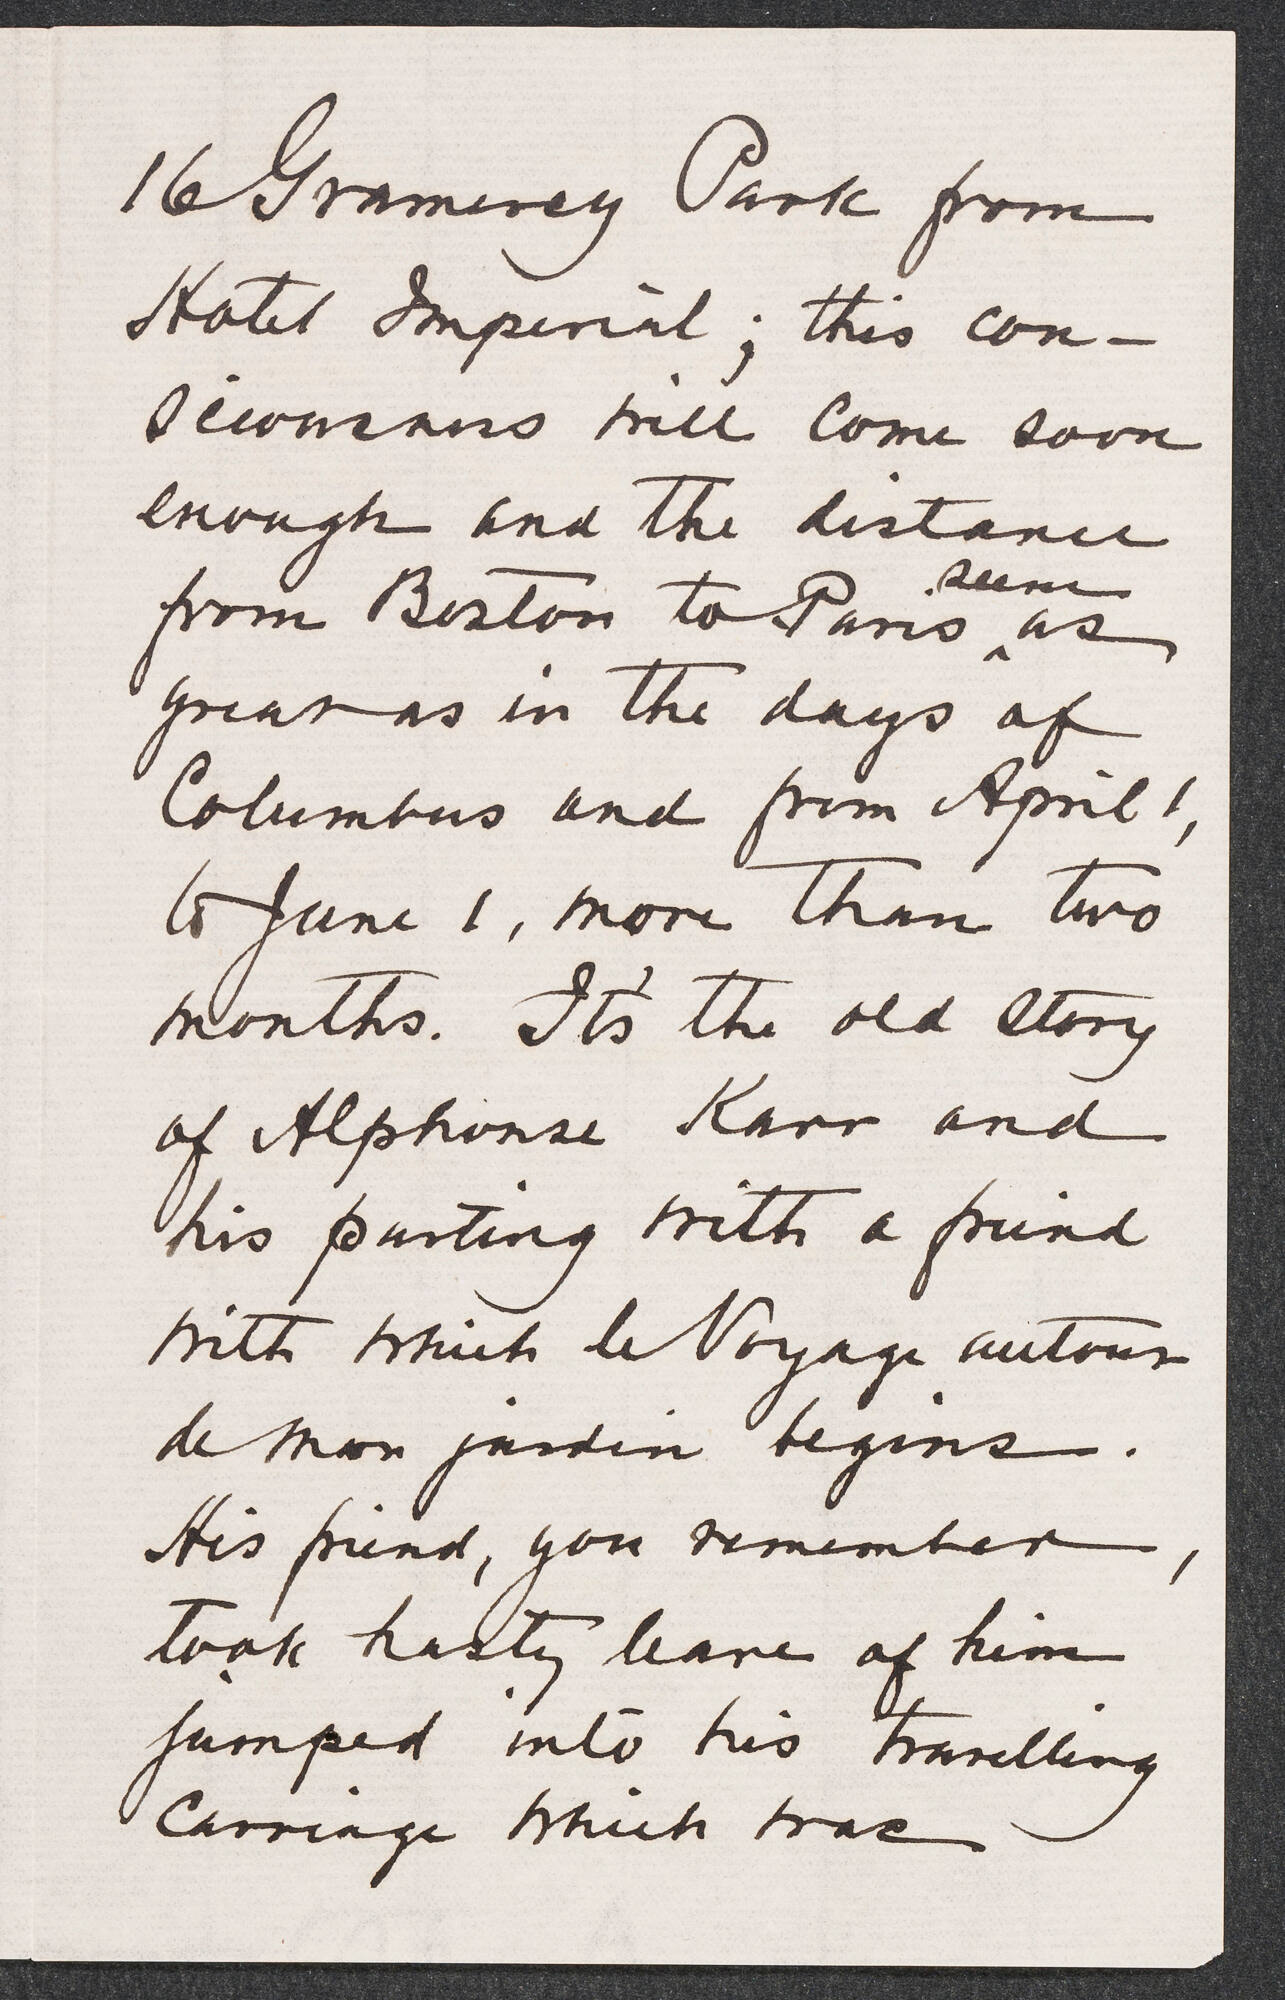 16 Gramercy Park from
Hotel Imperial; this con-
sciousness will come soon
enough and the distance
from Boston to Paris ^seem as
great as in the days of
Columbus and from April 1,
to June 1, more than two
months. It's the old story
of Alphonse Karr and
his parting with a friend
with which le Voyage autour
de mon jardin begins.
His friend, you remember,
took hasty leave of him
jumped into his travelling
carriage which was